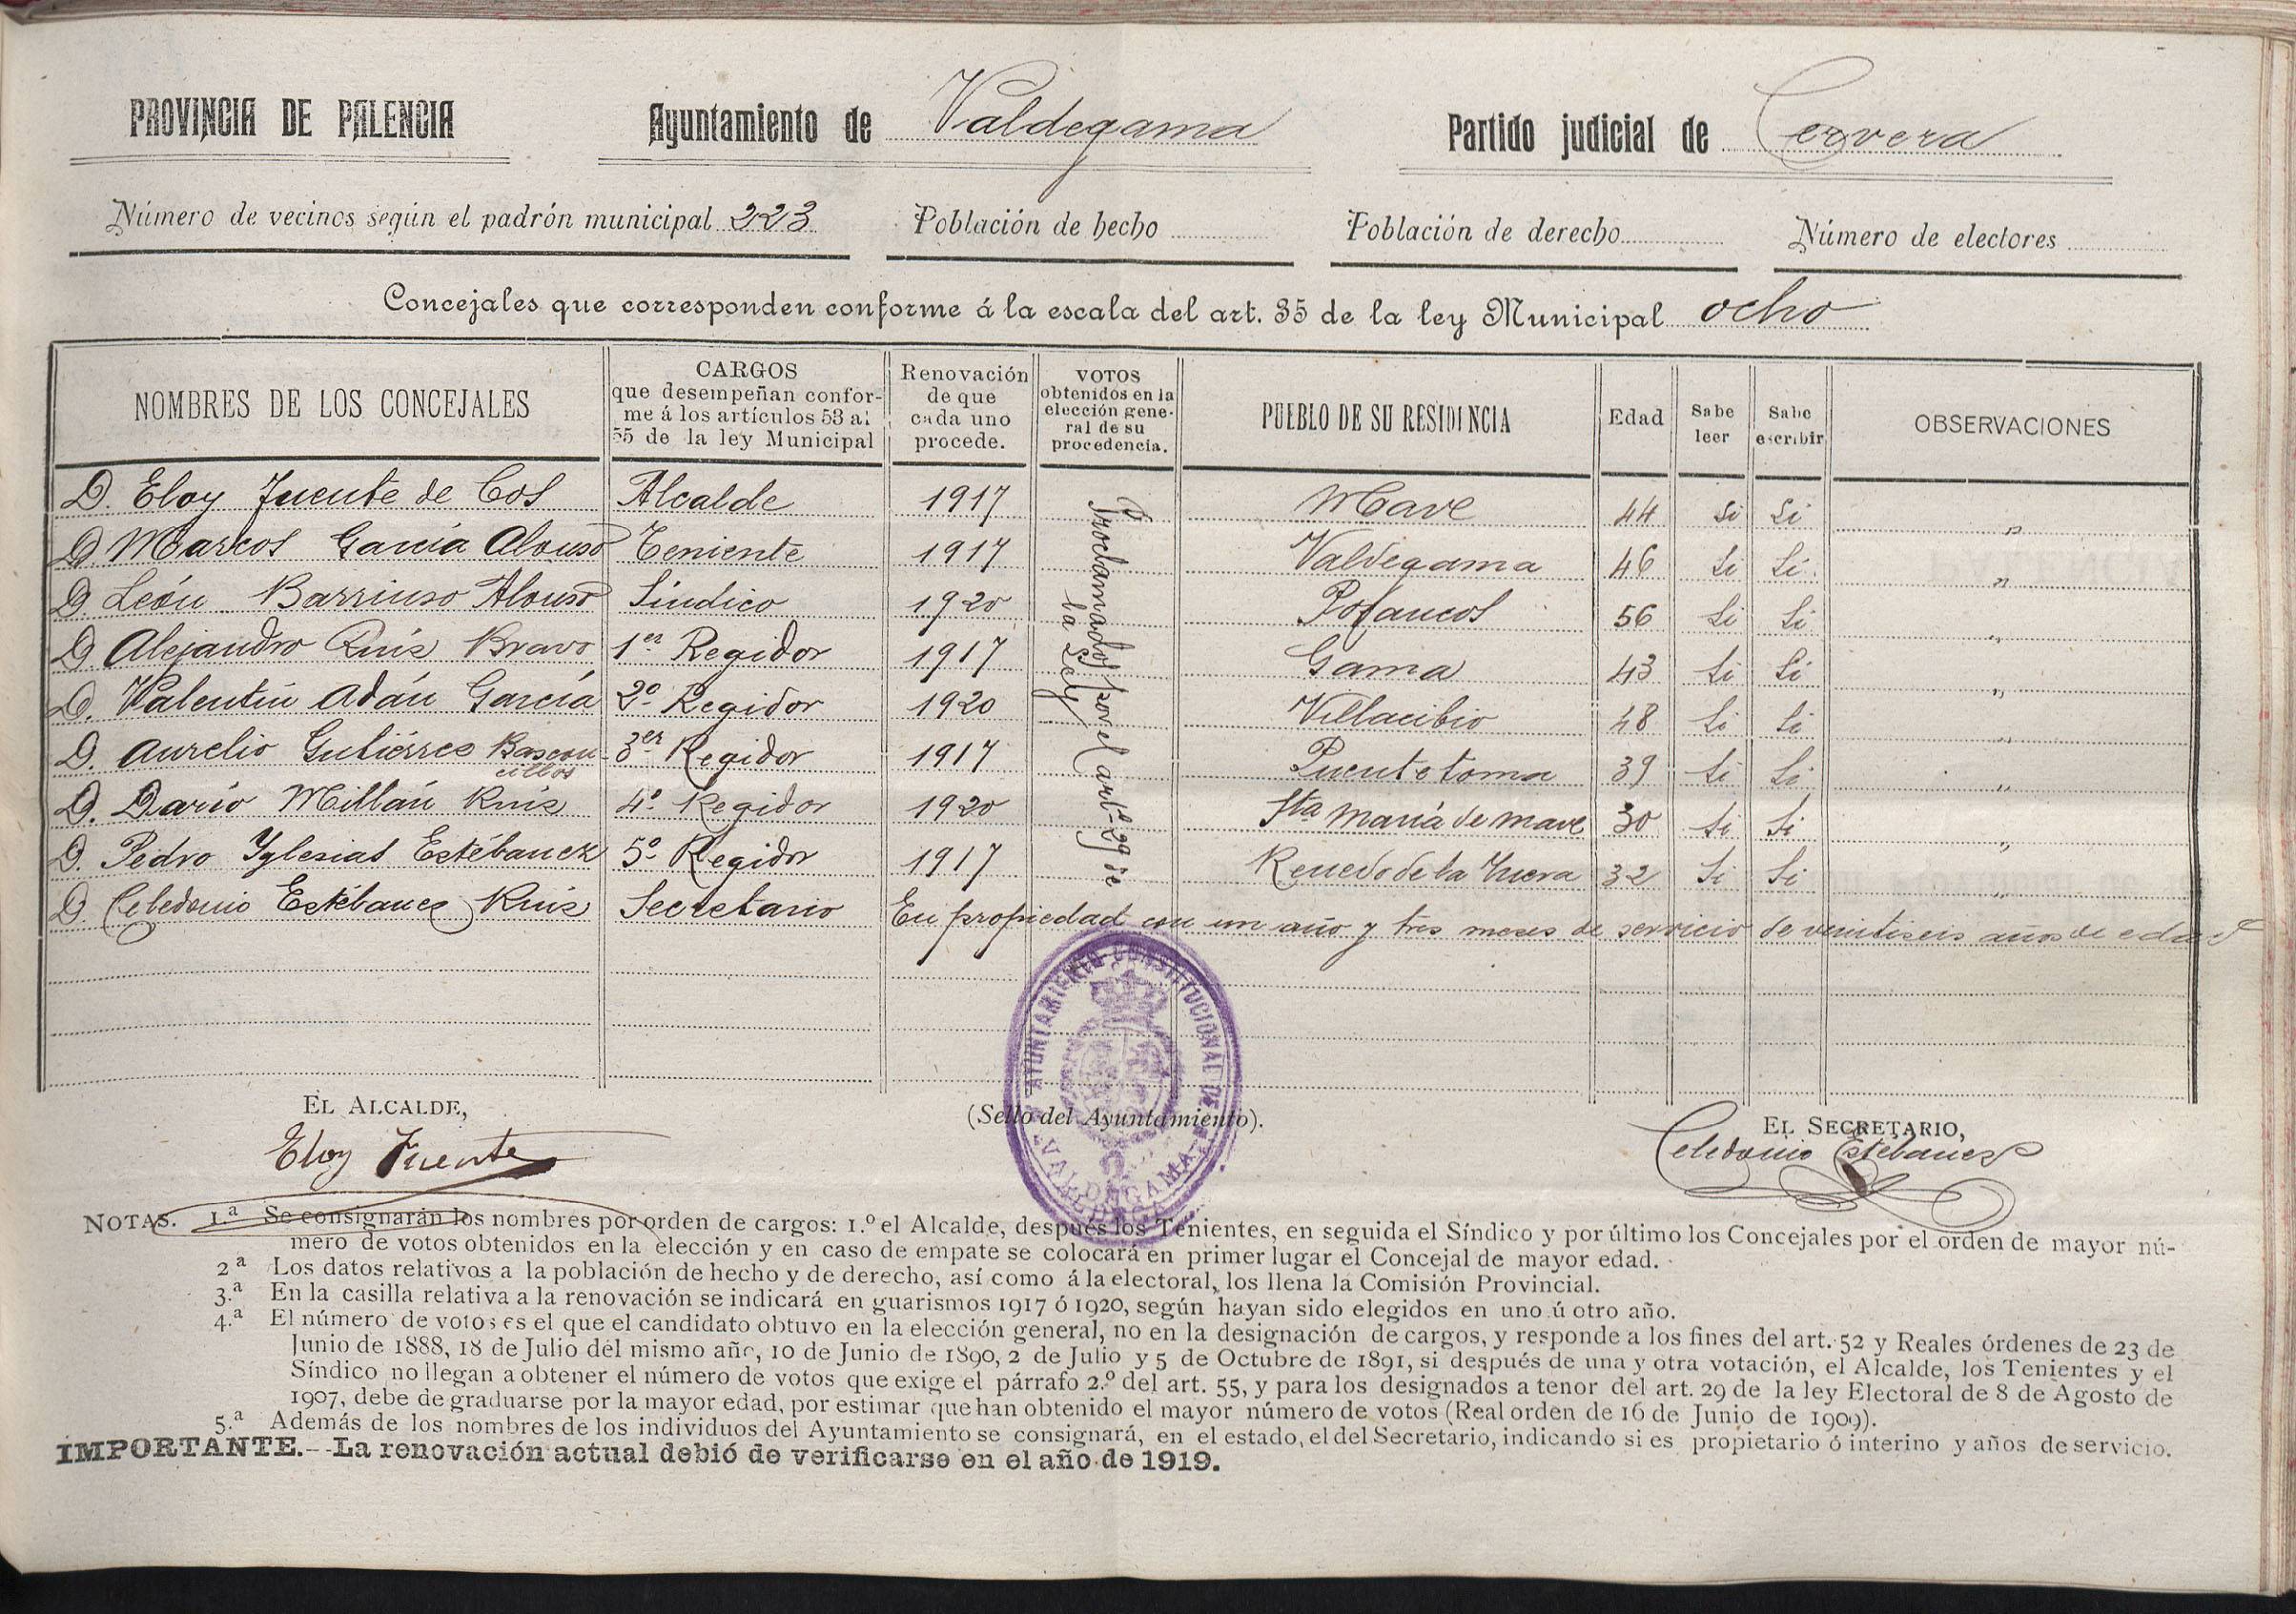 PROVINCIA DE PALENCIA Ayuntamiento de Valdegama Partido judicial de Cervera
Número de vecinos según el padrón municipal 223 Población de hecho Población de derecho Número de electores
Concejales que corresponden conforme á la escala del art. 35 de la ley Municipal ocho
NOMBRES DE LOS CONCEJALES
CARGOS
que desempeñan confor-
me á los artículos 53 al
55 de la ley Municipal
Renovación
de que
cada uno
procede.
VOTOS
obtenidos en la
elección gene-
ral de su
procedencia.
PUEBLO DE SU RESIDENCIA
Edad
Sabe
leer
Sabe
escribir
OBSERVACIONES
D. Eloy Fuente de Cos Alcalde 1917 Mave 44 Si Si "
D Marcos García Alonso Teniente 1917 Valdegama 46 Si Si "
D. León Barriuso Alonso Síndico 1920 Pozancos 56 Si Si "
D Alejandro Ruís Bravo 1er Regidor 1917 Gama 43 Si Si "
D. Valentín Adán García 2º Regidor 1920 Villacibio 48 Si Si "
D. Aurelio Gutiérres Bascon 3er Regidor 1917 Puentetoma 39 Si Si "
cillos
D. Darío Millán Ruis 4º Regidor 1920 Sta María de Mave 30 Si Si "
D. Pedro Yglesias Estébanez 5º Regidor 1917 Renedo de la Ynera 32 Si Si "
Proclamados por el artº 29 de
la Ley
D. Celedonio Estébanez Ruis Secretario En propiedad con un año y tres meses de servicio de veintiseis años de edad
AYUNTAMIENTO CONSTITUCIONAL DE
VALDEGAMA
EL ALCALDE, (Sello del Ayuntamiento). EL SECRETARIO,
Eloy Fuente Celedonio Estébanez
NOTAS. 1.ª Se consignarán los nombres por orden de cargos: 1.º el Alcalde, después los Tenientes, en seguida el Síndico y por último los Concejales por el orden de mayor nú-
mero de votos obtenidos en la elección y en caso de empate se colocará en primer lugar el Concejal de mayor edad.
2ª Los datos relativos a la población de hecho y de derecho, así como á la electoral, los llena la Comisión Provincial.
3.ª En la casilla relativa a la renovación se indicará en guarismos 1917 ó 1920, según hayan sido elegidos en uno ú otro año.
4.ª El número de votos es el que el candidato obtuvo en la elección general, no en la designación de cargos, y responde a los fines del art. 52 y Reales órdenes de 23 de
Junio de 1888, 18 de Julio del mismo año, 10 de Junio de 1890, 2 de Julio y 5 de Octubre de 1891, si después de una y otra votación, el Alcalde, los Tenientes y el
Síndico no llegan a obtener el número de votos que exige el párrafo 2.º del art. 55, y para los designados a tenor del art. 29 de la ley Electoral de 8 de Agosto de
1907, debe de graduarse por la mayor edad, por estimar que han obtenido el mayor número de votos (Real orden de 16 de Junio de 1909).
5.ª Además de los nombres de los individuos del Ayuntamiento se consignará, en el estado, el del Secretario, indicando si es propietario ó interino y años de servicio.
IMPORTANTE.--La renovación actual debió de verificarse en el año de 1919.